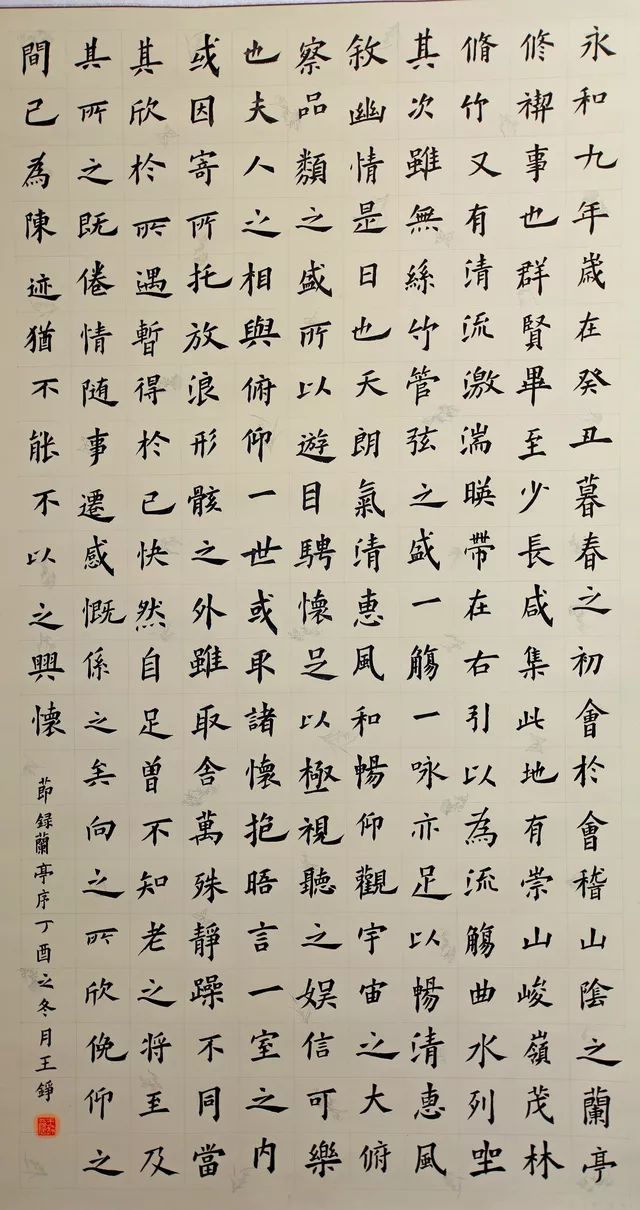 永和九年歲在癸丑暮春之初會於會稽山陰之蘭亭
修禊事也群賢畢至少長咸集此地有崇山峻嶺茂林
脩竹又有清流激湍暎帶在右引以為流觴曲水列坐
其次雖無絲竹管弦之盛一觴一咏亦足以暢清惠風
敘幽情是日也天朗氣清惠風和暢仰觀宇宙之大俯
察品類之盛所以遊目騁懷足以極視聽之娛信可樂
也夫人之相與俯仰一世或取諸懷抱晤言一室之内
或因寄所托放浪形骸之外雖取舍萬殊靜躁不同當
其欣於所遇暫得於己快然自足曾不知老之將至及
其所之既倦情随事遷感慨係之矣向之所欣俛仰之
間已為陳迹猶不能不以之興懷
節録蘭亭序丁酉之冬月王錚